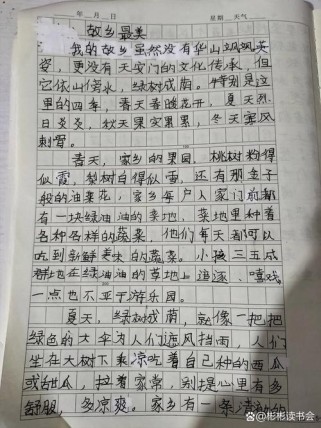 年 月 日 星期 天气
故乡最美
我的故乡虽然没有华山巍巍英
姿,更没有天安门的文化传承,但
它依山傍水,绿树成荫。特别是这
里的四季,春天春暖花开,夏天烈
日炎炎,秋天果实累累,冬天寒风
刺骨。
春天,家乡的果园,桃树粉得
似霞,梨树白得似雪,还有那金子
般的油菜花,家乡每户人家门前都
有一块绿油油的菜地,菜地里种着
各种各样的蔬菜,他们每天都可以
吃到新鲜美味的蔬菜。小孩三五成
群地在绿油油的草地上追逐、嘻戏
一点也不亚于游乐园。
夏天,绿树成荫,就像一把把
绿色的大伞为人们遮风挡雨,人们
坐在大树下乘凉吃着自己种的西瓜
或甜瓜,拉着家常,别提心里有多
舒服,多凉爽。家乡有一条清澈的
@彬彬读书会